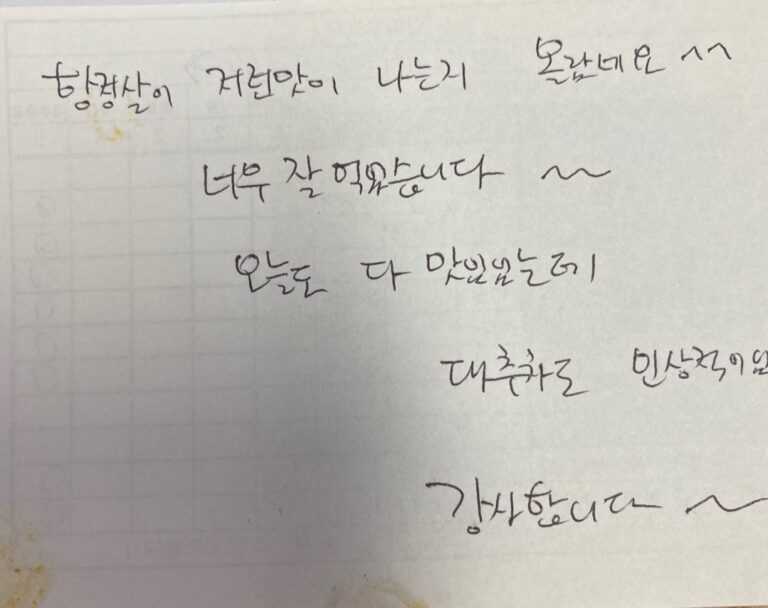 항정살이 저런맛이 나는지 몰랐네요 ^^
너무 잘 먹었습니다 ~
오늘도 다 맛있었는데
대추차도 인상적이었
감사합니다 ~